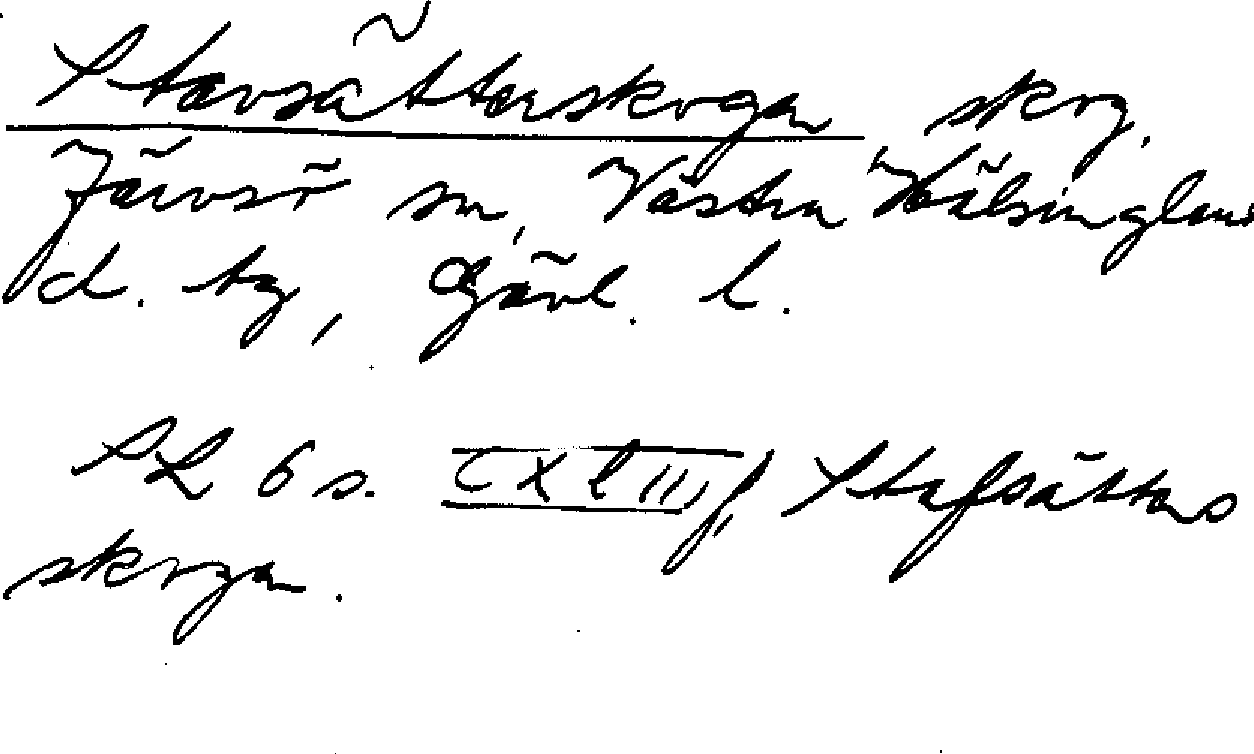 Stavsätterskogen skog,
Järvsö sn, Västra Hälsinglan
d. tg, Gävl. l.
SL 6 s. CXLIII, Stafsätters
skogen.